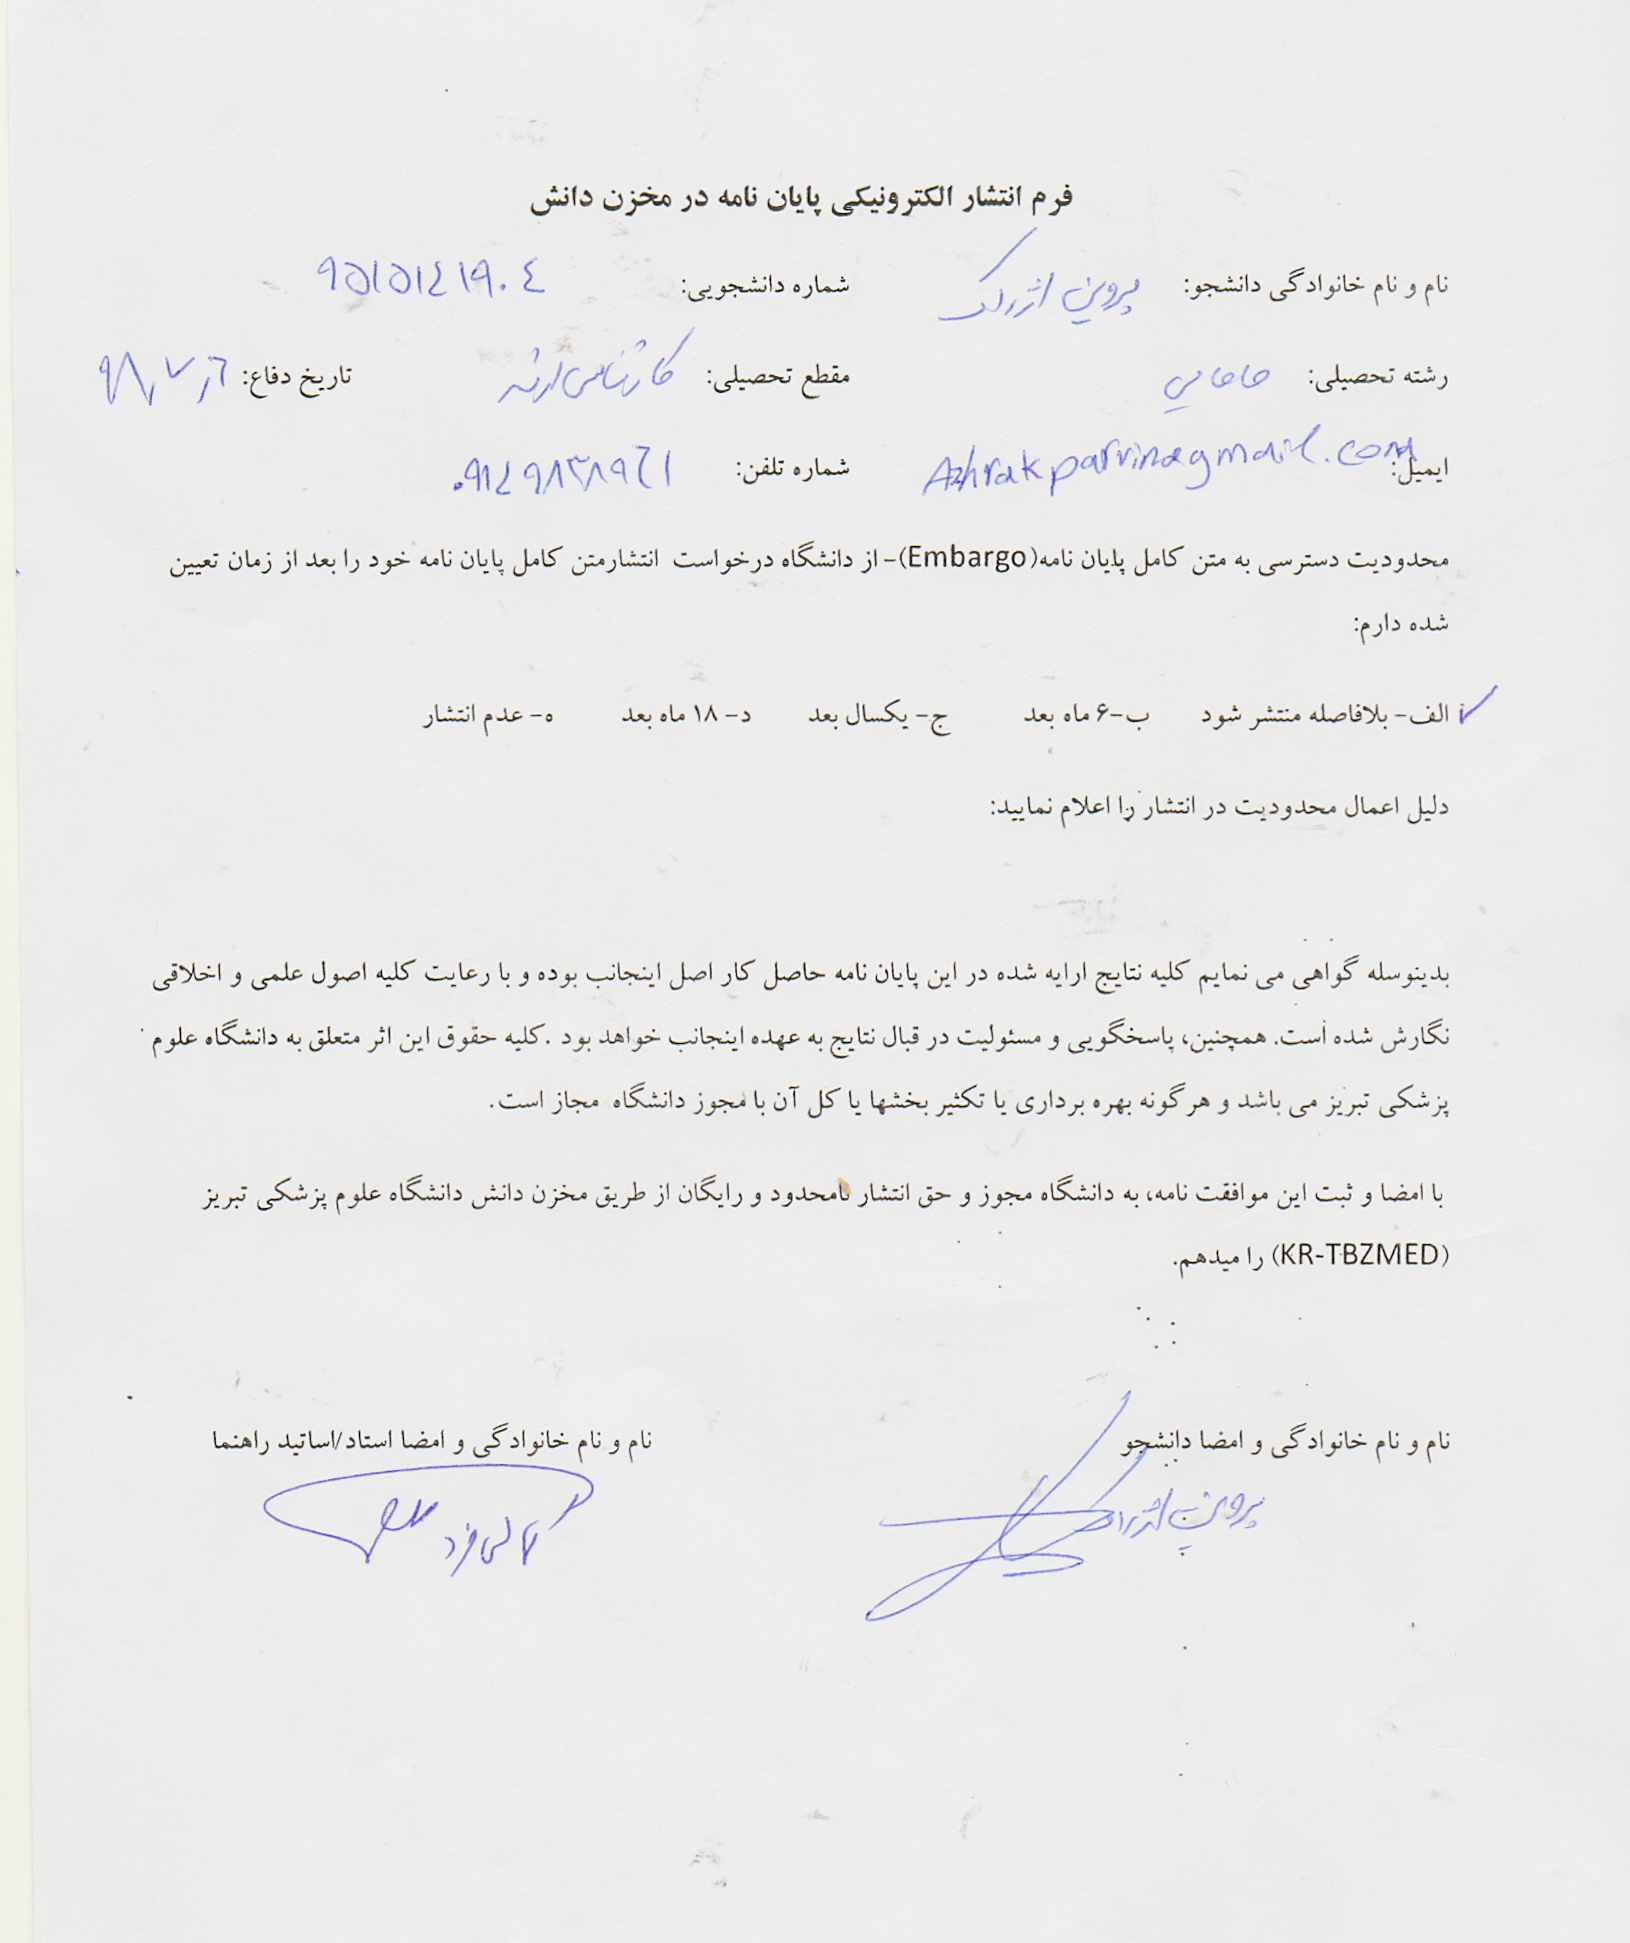 فرم انتشار الکترونیکی پایان نامه در مخزن دانش
نام و نام خانوادگی دانشجو: پروین اژرک شماره دانشجویی: ۹۵۱۵۱٤۱۹۰٤
رشته تحصیلی: مامایی مقطع تحصیلی: کارشناسی ارشد تاریخ دفاع: ۹۸,۷,٦
ایمیل: Azhrakparvin@gmail.com شماره تلفن:
محدودیت دسترسی به متن کامل پایان نامه(Embargo)- از دانشگاه درخواست انتشارمتن کامل پایان نامه خود را بعد از زمان تعیین
شده دارم:
✓ الف- بلافاصله منتشر شود ب-۶ ماه بعد ج- یکسال بعد د- ۱۸ ماه بعد ه- عدم انتشار
دلیل اعمال محدودیت در انتشار را اعلام نمایید:
بدینوسله گواهی می نمایم کلیه نتایج ارایه شده در این پایان نامه حاصل کار اصل اینجانب بوده و با رعایت کلیه اصول علمی و اخلاقی
نگارش شده است. همچنین، پاسخگویی و مسئولیت در قبال نتایج به عهده اینجانب خواهد بود .کلیه حقوق این اثر متعلق به دانشگاه علوم
پزشکی تبریز می باشد و هرگونه بهره برداری یا تکثیر بخشها یا کل آن با مجوز دانشگاه مجاز است.
با امضا و ثبت این موافقت نامه، به دانشگاه مجوز و حق انتشار نامحدود و رایگان از طریق مخزن دانش دانشگاه علوم پزشکی تبریز
(KR-TBZMED) را میدهم.
نام و نام خانوادگی و امضا دانشجو نام و نام خانوادگی و امضا استاد/اساتید راهنما
پروین اژرک